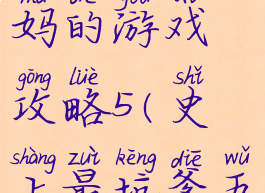 妈的游戏
gōng lüè shǐ
攻略5(史
shàng zuì kēng diē wǔ
上最坑爹五